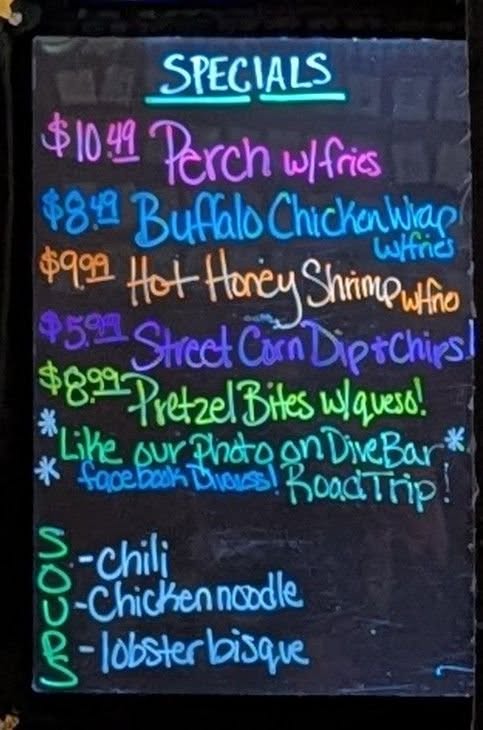 SPECIALS
$10.49 Perch w/fries
$8.49 Buffalo Chicken Wrap
w/fries
$9.99 Hot Honey Shrimp
$5.99 Street Corn Dip + Chips!
$8.99 Pretzel Bites w/queso!
* Like our photo on Dive Bar *
* facebook Road Trip!
SOUPS
-Chili
-Chicken noodle
-lobster bisque